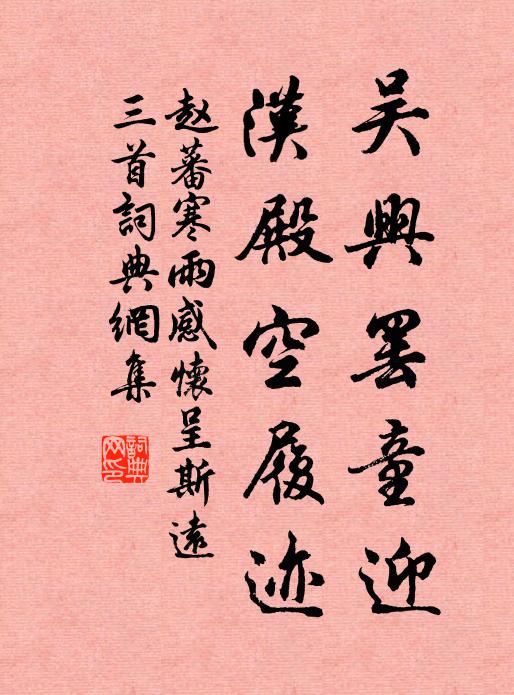 吴興罢童迎
漢殿空履迹
赵蕃寒雨感懷呈斯遠
三首詞典網集
詞典
网印